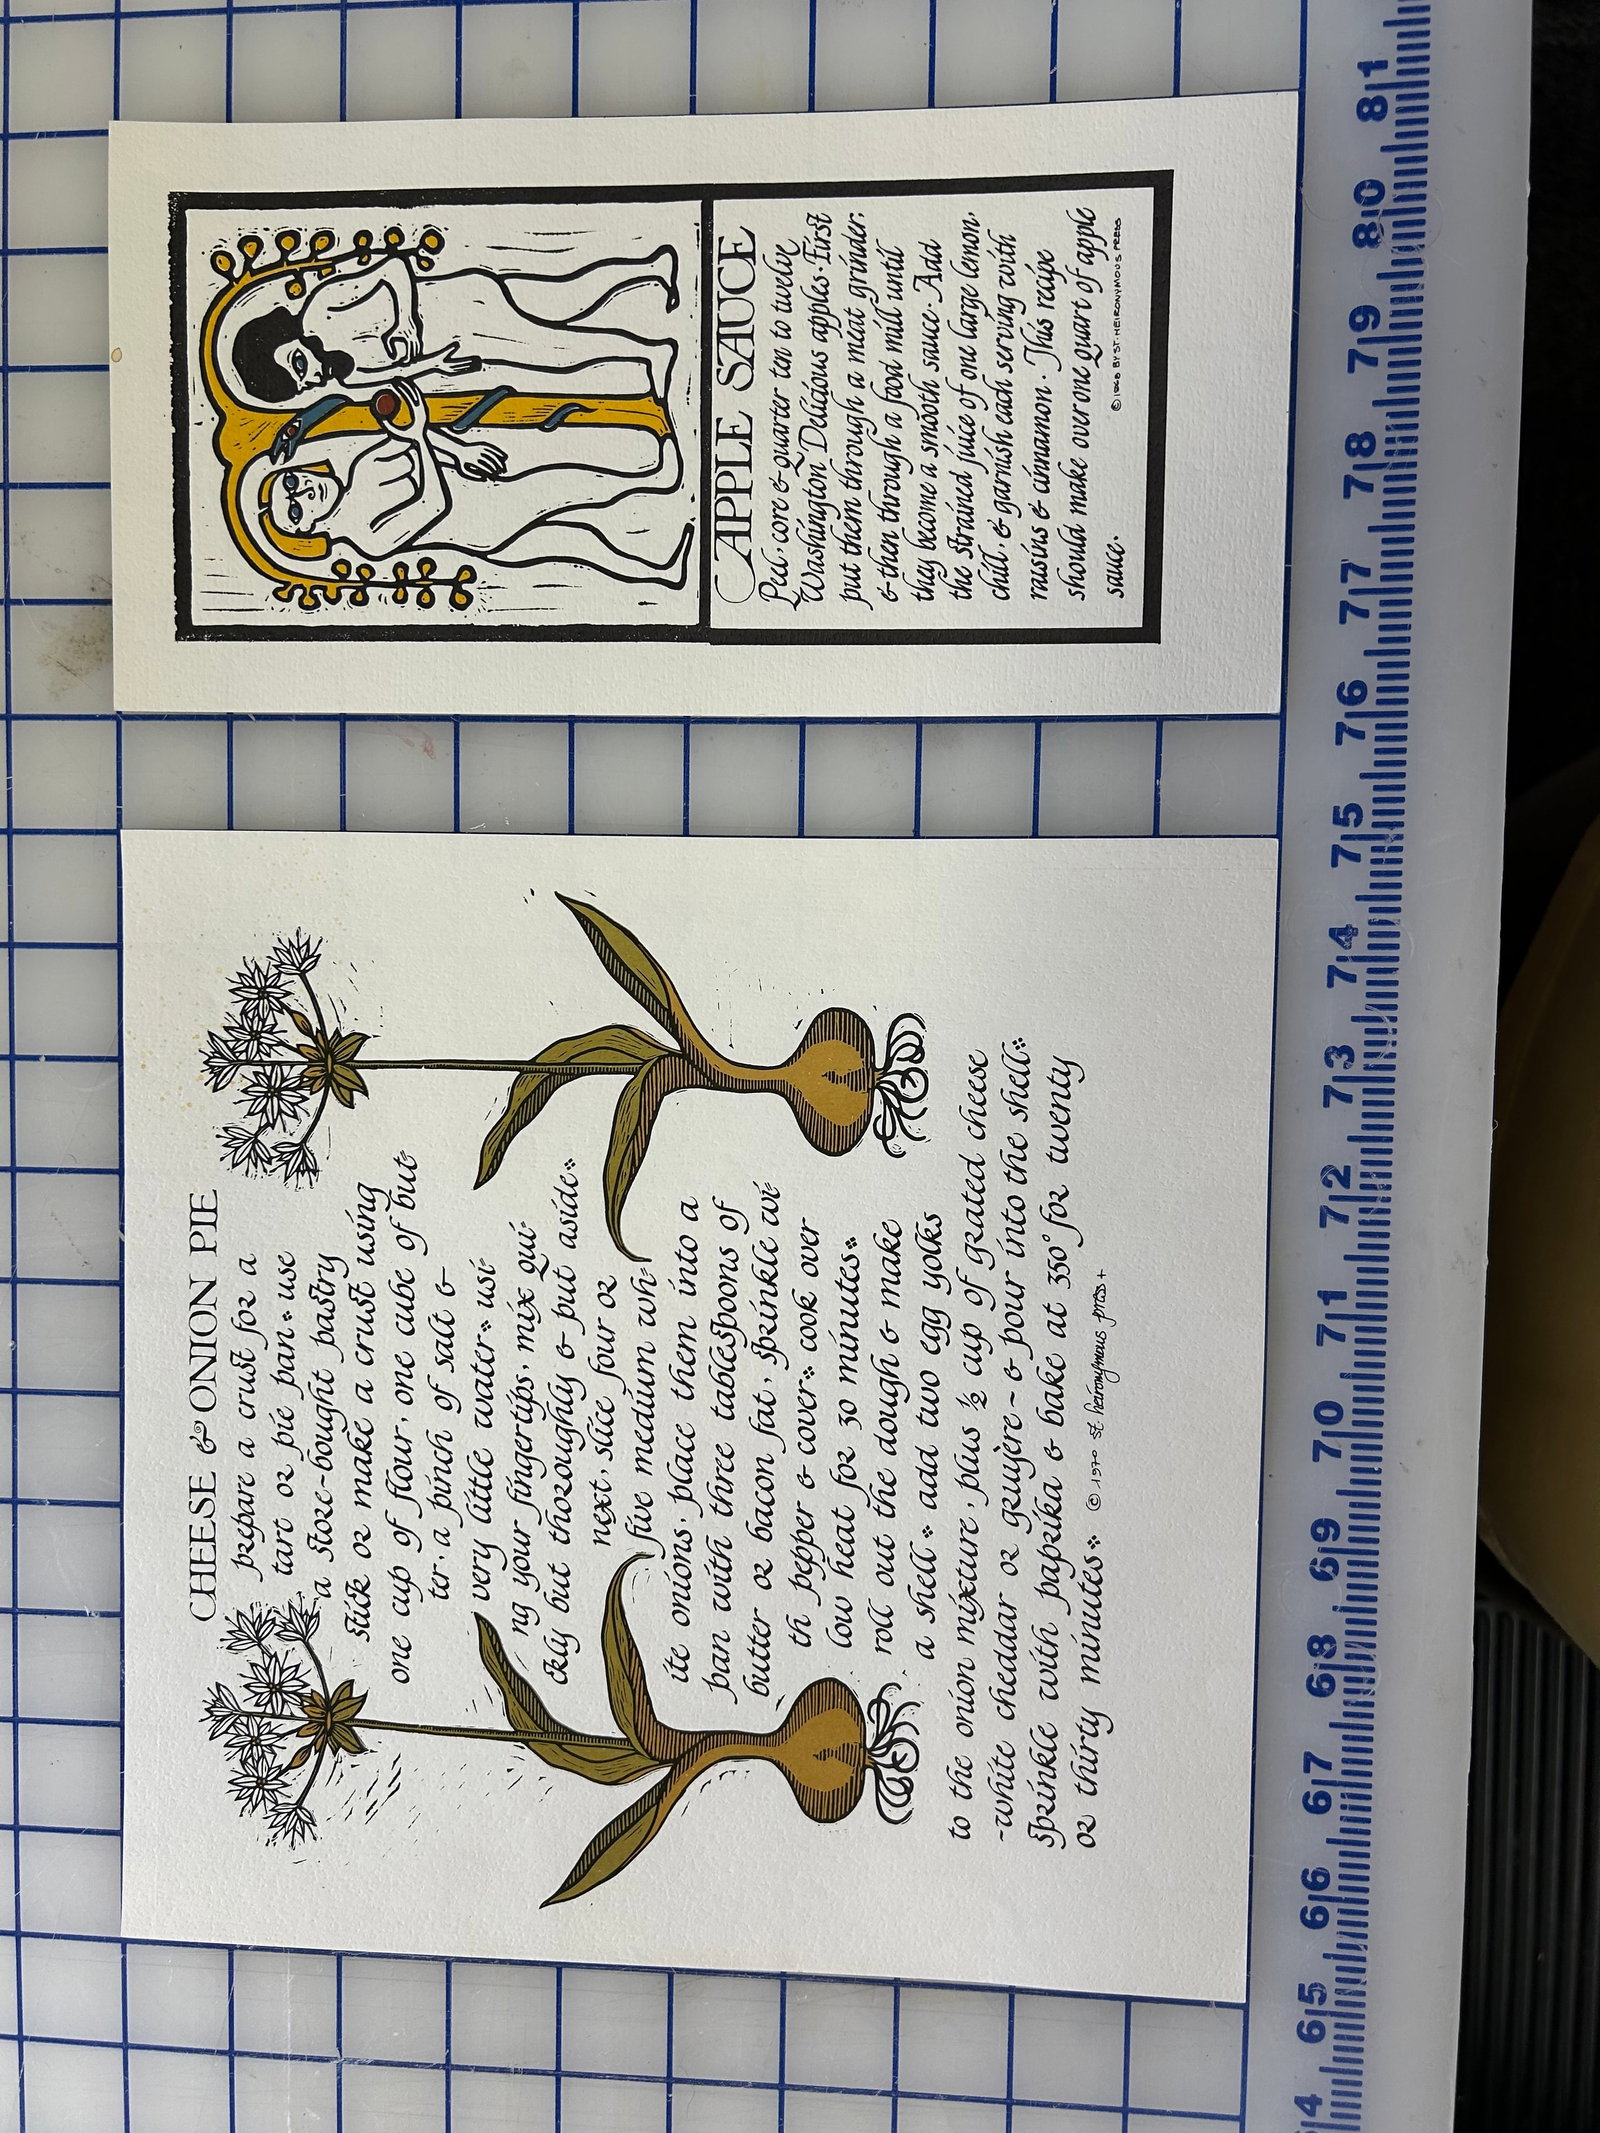 CHEESE & ONION PIE
prepare a crust for a
tart or pie pan·: use
a store-bought pastry
stick or make a crust using
one cup of flour, one cube of but-
ter, a pinch of salt &
very little water·: usi-
ng your fingertips, mix qui-
ckly but thoroughly & put aside·:
next, slice four or
five medium wh-
ite onions, place them into a
pan with three tablespoons of
butter or bacon fat, sprinkle wi-
th pepper & cover·: cook over
low heat for 30 minutes·:
roll out the dough & make
a shell·: add two egg yolks
to the onion mixture, plus ½ cup of grated cheese
-white cheddar or gruyère- & pour into the shell·:
sprinkle with paprika & bake at 350° for twenty
or thirty minutes·: © 1970 st. heironymous press+
APPLE SAUCE
Peel, core & quarter ten to twelve
Washington Delicious apples·First
put them through a meat grinder;
& then through a food mill until
they become a smooth sauce·Add
the strained juice of one large lemon,
chill, & garnish each serving with
raisins & cinnamon·This recipe
should make over one quart of apple
sauce·
BY ST HEIRONYMOUS PRESS
64 65 66 67 68 69 70 71 72 73 74 75 76 77 78 79 80 81